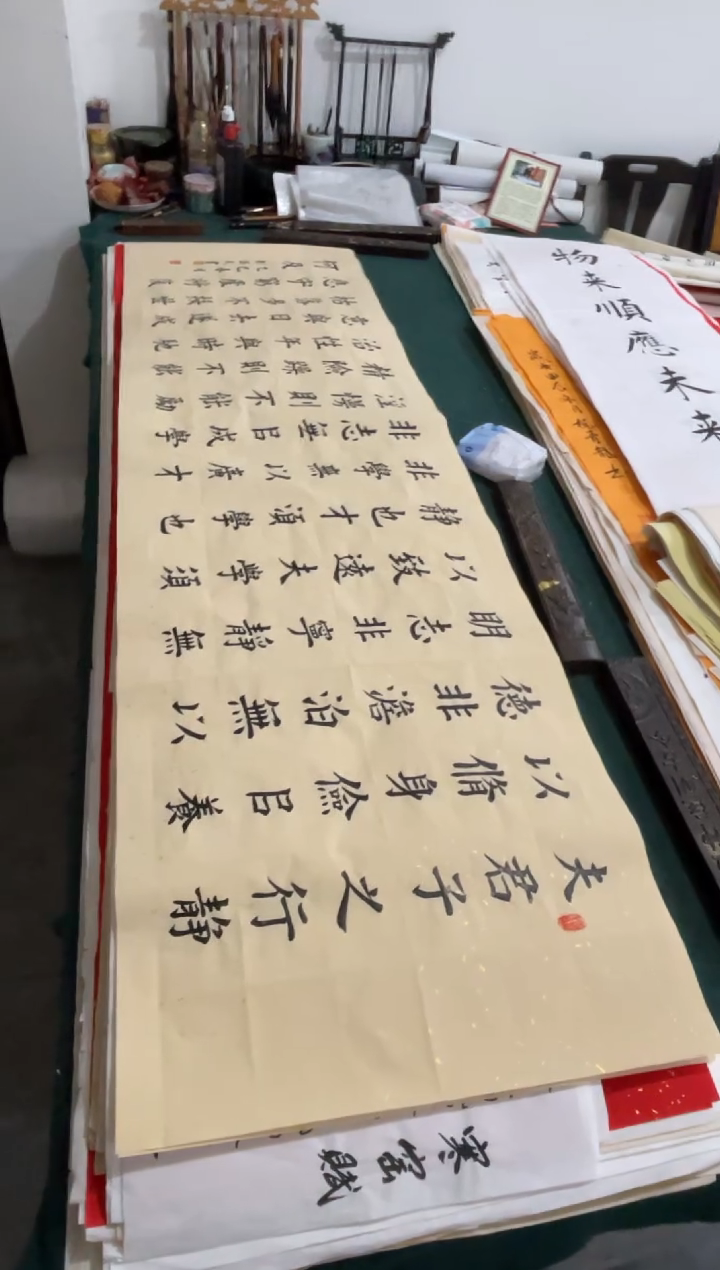 夫君子之行靜
以脩身儉㠯養
德非澹泊無以
明志非寧靜無
以致遠夫學須
靜也才須學也
非學無以廣才
非志無㠯成學
淫則不能勵
精險躁則不能
治性年與時馳
意與日去遂成
枯落多不接世
悲守窮廬將復
何及
物来順應未来
寒窑賦